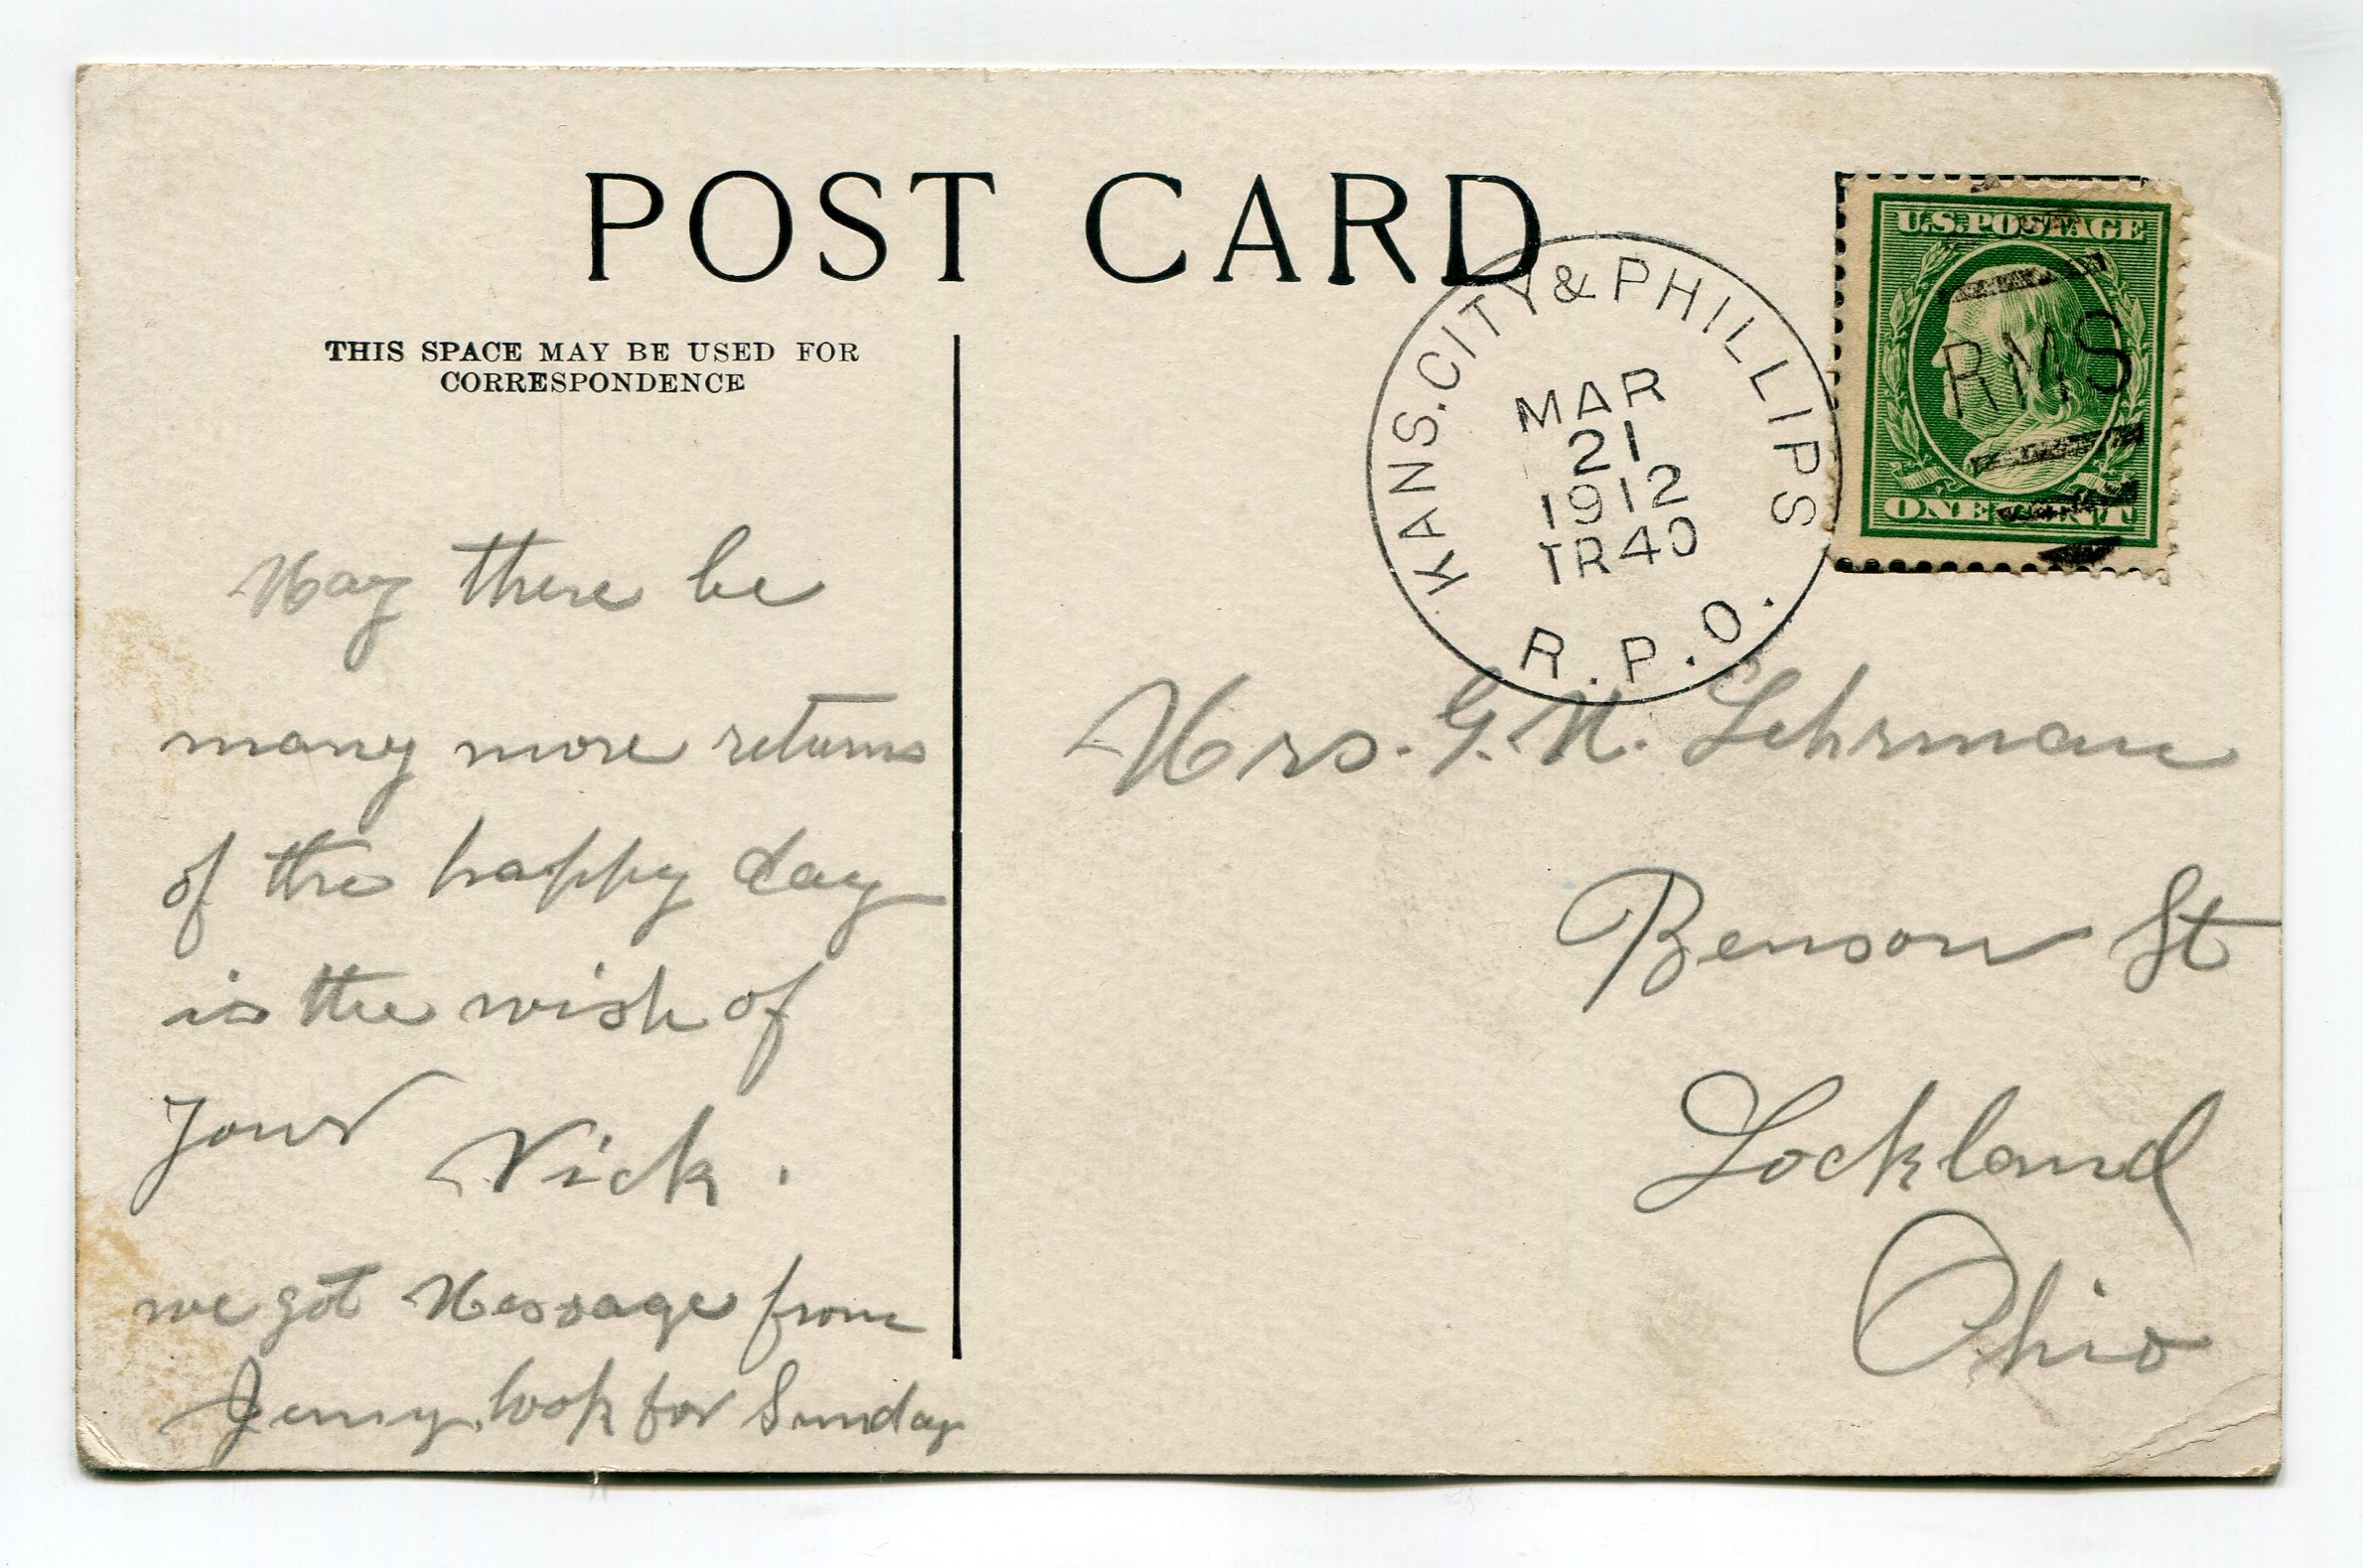 POST CARD
THIS SPACE MAY BE USED FOR
CORRESPONDENCE
KANS. CITY & PHILLIPS
MAR
21
1912
TR 40
R.P.O.
U.S. POSTAGE
RMS
ONE CENT
May there be
many more returns
of the happy day
is the wish of
Your
Nick.
we got Message from
Jenny look for Sunday
Mrs. G. N. Lehrman
Benson St
Lockland
Ohio